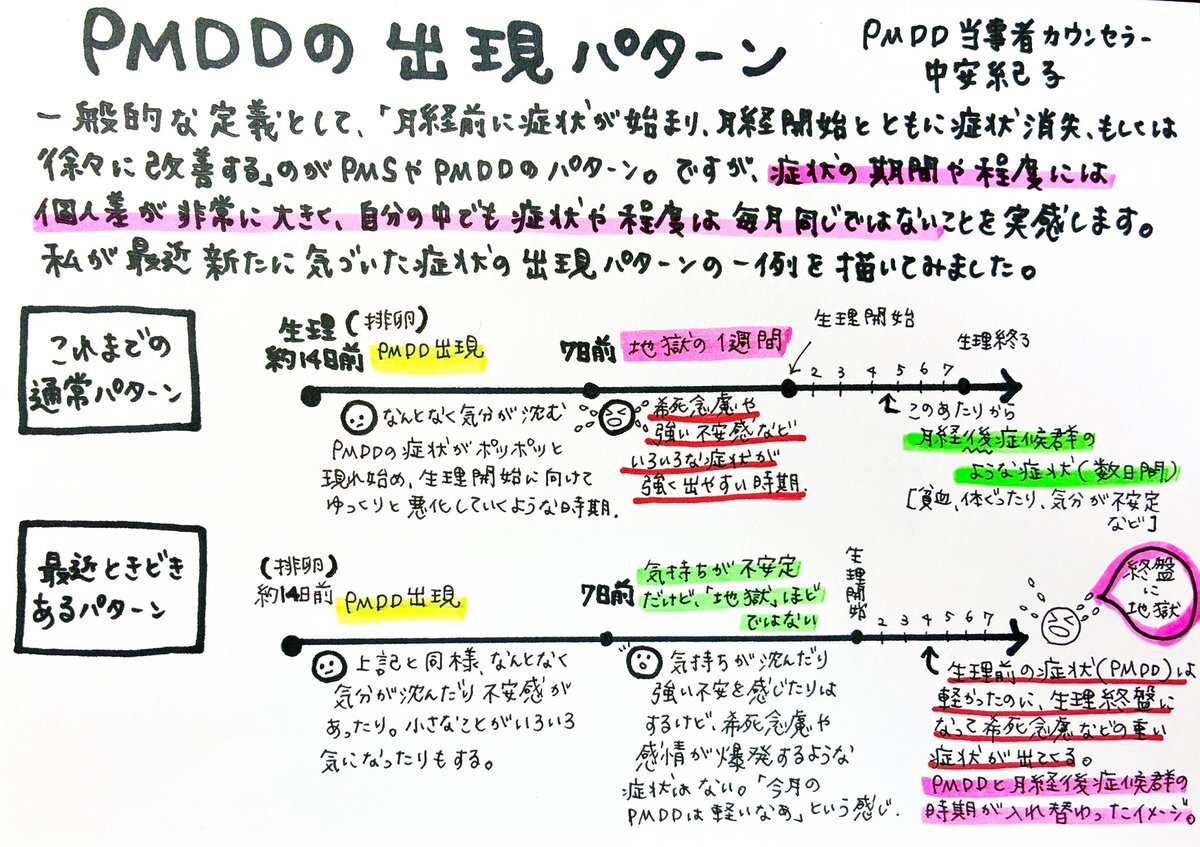 PMDDの出現パターン
PMDD当事者カウンセラー
中安紀子
一般的な定義として、「月経前に症状が始まり、月経開始とともに症状消失、もしくは
徐々に改善する」のがPMSやPMDDのパターン。ですが、症状の期間や程度には
個人差が非常に大きく、自分の中でも症状や程度は毎月同じではないことを実感します。
私が最近新たに気づいた症状の出現パターンの一例を描いてみました。
これまでの
通常パターン
生理(排卵)
約14日前 PMDD出現
7日前 地獄の1週間
生理開始
生理終る
2 3 4 5 6 7
なんとなく気分が沈む
PMDDの症状がポツポツと
現れ始め、生理開始に向けて
ゆっくりと悪化していくような時期.
希死念慮や
強い不安感など
いろいろな症状が
強く出やすい時期.
このあたりから
月経後症候群の
ような症状(数日間)
[貧血、体ぐったり、気分が不安定
など]
最近ときどき
あるパターン
(排卵)
約14日前 PMDD出現
7日前
気持ちが不安定
だけど、「地獄」ほど
ではない
生理開始
2 3 4 5 6 7
終盤
に
地獄
上記と同様、なんとなく
気分が沈んだり不安感が
あったり。小さなことがいろいろ
気になったりもする。
気持ちが沈んだり
強い不安を感じたりは
するけど、希死念慮や
感情が爆発するような
症状はない。「今月の
PMDDは軽いなぁ」という感じ.
生理前の症状(PMDD)は
軽かったのに、生理終盤に
なって希死念慮などの重い
症状が出てくる。
PMDDと月経後症候群の
時期が入れ替わったイメージ。